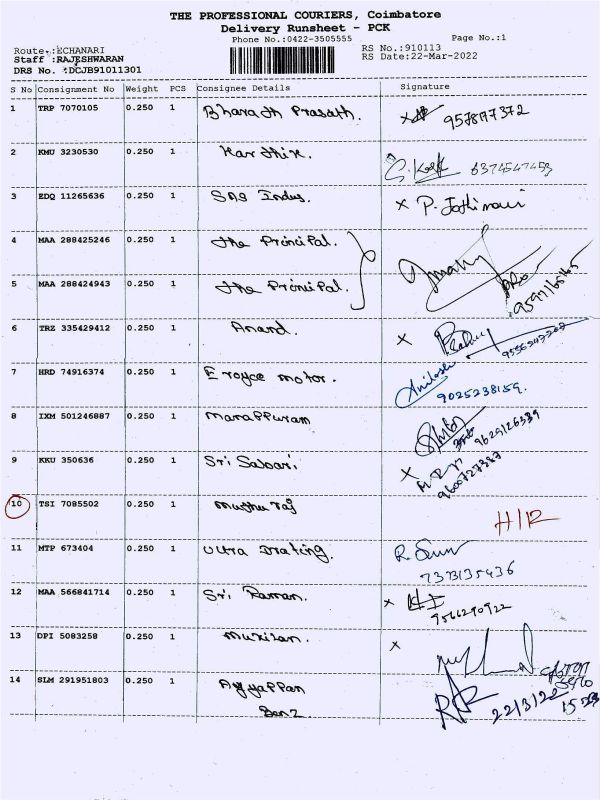 THE PROFESSIONAL COURIERS, Coimbatore
Delivery Runsheet - PCK
Phone No.:0422-3505555
Page No.:1
Route :ECHANARI
RS No.:910113
Staff :RAJESHWARAN
RS Date:22-Mar-2022
DRS No. :DCJB91011301
S No Consignment No Weight PCS Consignee Details Signature
1 TRP 7070105 0.250 1 Bharath Prasath.
2 KMU 3230530 0.250 1 Karthik. 6374547453
3 EDQ 11265636 0.250 1 SAS Indus. x P. Jothimani
4 MAA 288425246 0.250 1 The Principal.
5 MAA 288424943 0.250 1 The Principal.
6 TRZ 335429412 0.250 1 Anand. x
7 HRD 74916374 0.250 1 E royce motor. 9025238159.
8 IXM 501246887 0.250 1 manappuram 9629126339
9 KKU 350636 0.250 1 Sri Sabari. x 9600727387
10 TSI 7085502 0.250 1 muthu raj H/R
11 MTP 673404 0.250 1 Ultra 7373135436
12 MAA 566841714 0.250 1 Sri Raman. x 9566290922
13 DPI 5083258 0.250 1 x
14 SLM 291951803 0.250 1 Ayyappan 22/3/22
Benz